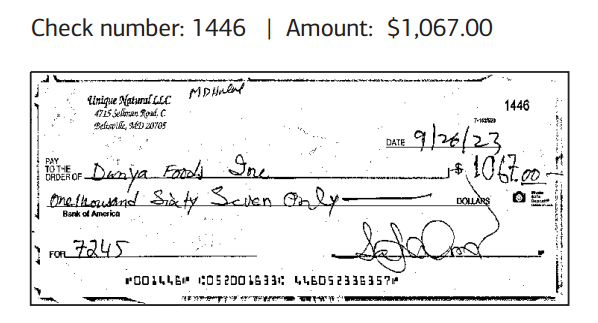 Check number: 1446 | Amount: $1,067.00
MD Halal
Unique Natural LLC
4715 Sellman Road, C
Beltsville, MD 20705
1446
DATE 9/26/23
PAY TO THE ORDER OF Danya Foods Inc $ 1067.00
One thousand Sixty Seven Only DOLLARS
Bank of America
FOR 7245
⑈001446⑈ ⑆052001633⑆ 446052336357⑈